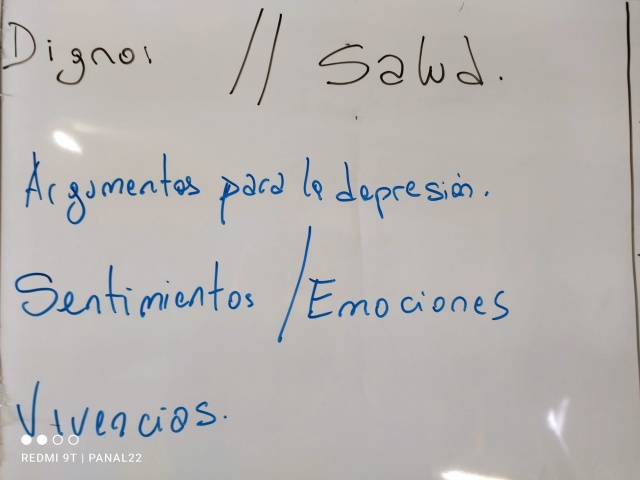 Digno: // Salud.
Argumentos para la depresión.
Sentimientos / Emociones
Vivencias.
REDMI 9T | PANAL22